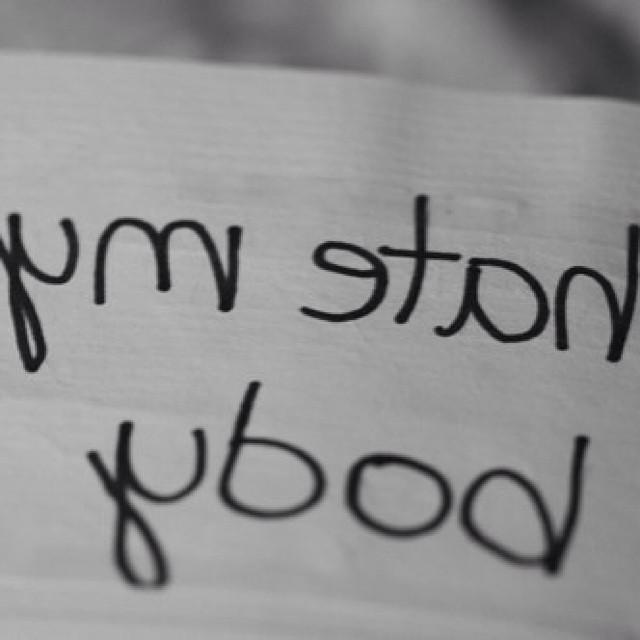 hate my
body